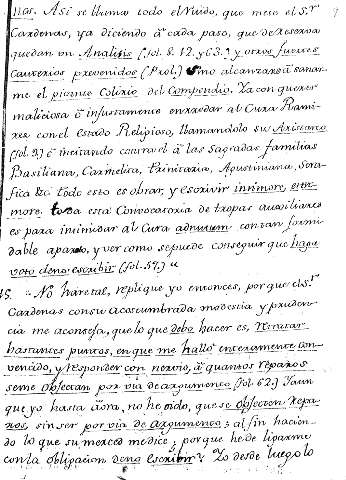 llas. Asi se llama todo el Ruido, que mete el S.r
Cardenas, ya diciendo à cada paso, que de Reserva
quedan un Analisis (fol. 8. 12. y 63.) y otros fuertes
Causterios prevenidos (Prol.) sino alcanzan à sanar-
me el picante Colirio del Compendio. Ya con querer
maliciosa è injustamente enrredar al Cura Rami-
rez con el estado Religioso, llamandolo su
(fol. 2.) è incitando contra el à las Sagradas familias
Basiliana, Carmelita, Trinitaria, Agustiniana, Sera-
fica &c todo esto es obrar, y escrivir
more. toda esta Convocatoria de tropas auxiliares
es para intimidar al Cura con tan formi-
dable aparato, y ver como se puede conseguir que haga
voto de no escribir (fol. 57.)
15. No hare tal, replique yo entonces, por que el S.r
Cardenas con su acostumbrada modestia y pruden-
cia me aconseja, que lo que debo hacer es, Retratar
bastantes puntos, en que me hallo enteramente con-
vencido, y Responder con nervio, à quantos reparos
se me objectan por via de argumento (fol 62.) Y aun
que yo hasta aora, no he oido, que se objecten Repa-
ros, sin ser por via de argumento; al fin hacien-
do lo que su merced me dice, porque he de ligarme
con la obligacion de no escribir? Yo desde luego lo